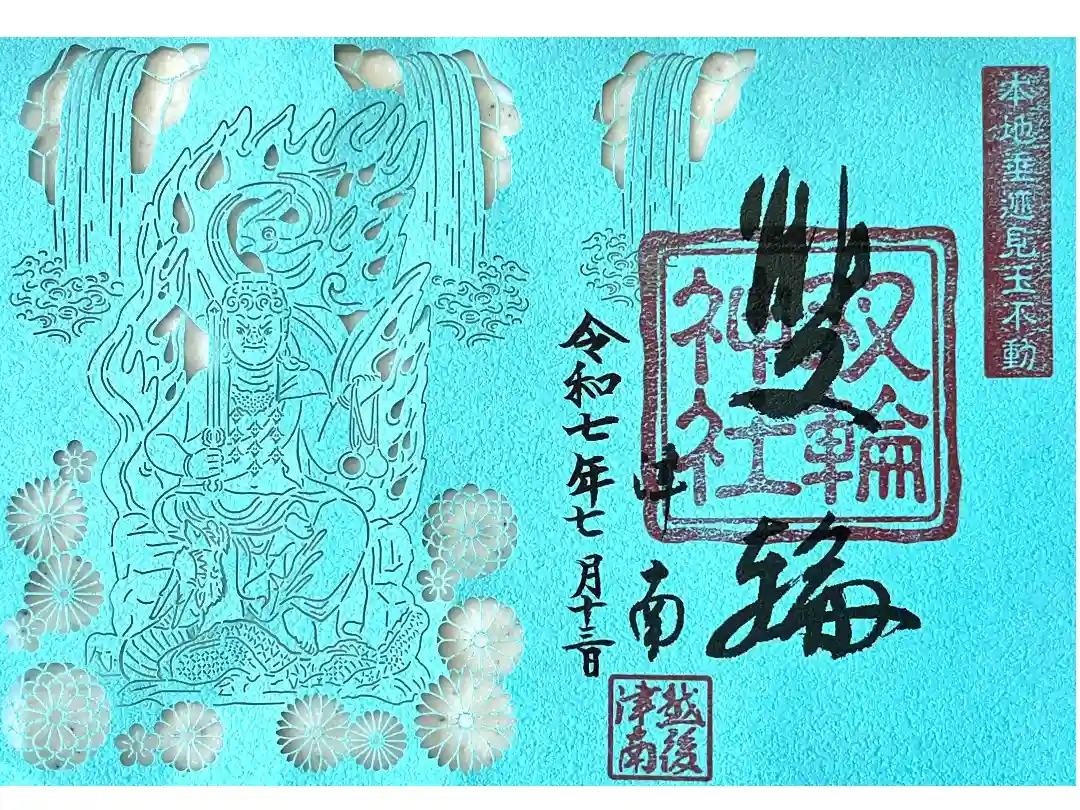 本地垂迹見玉不動
輪
輪
神社
津南
令和七年七月十三日
越後
津南